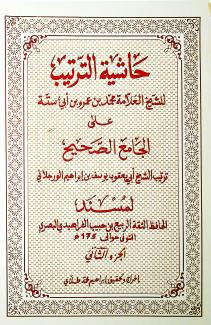 حاشية الترتيب
للشيخ العلامة محمد بن عمرو بن أبي ستة
على
الجامع الصحيح
ترتيب الشيخ أبي يعقوب يوسف بن إبراهيم الورجلاني
لمسند
الحافظ الثقة الربيع بن حبيب الفراهيدي البصري
المتوفى حوالي ١٧٥ هـ
الجزء الثاني
إبراهيم محمد طلاي